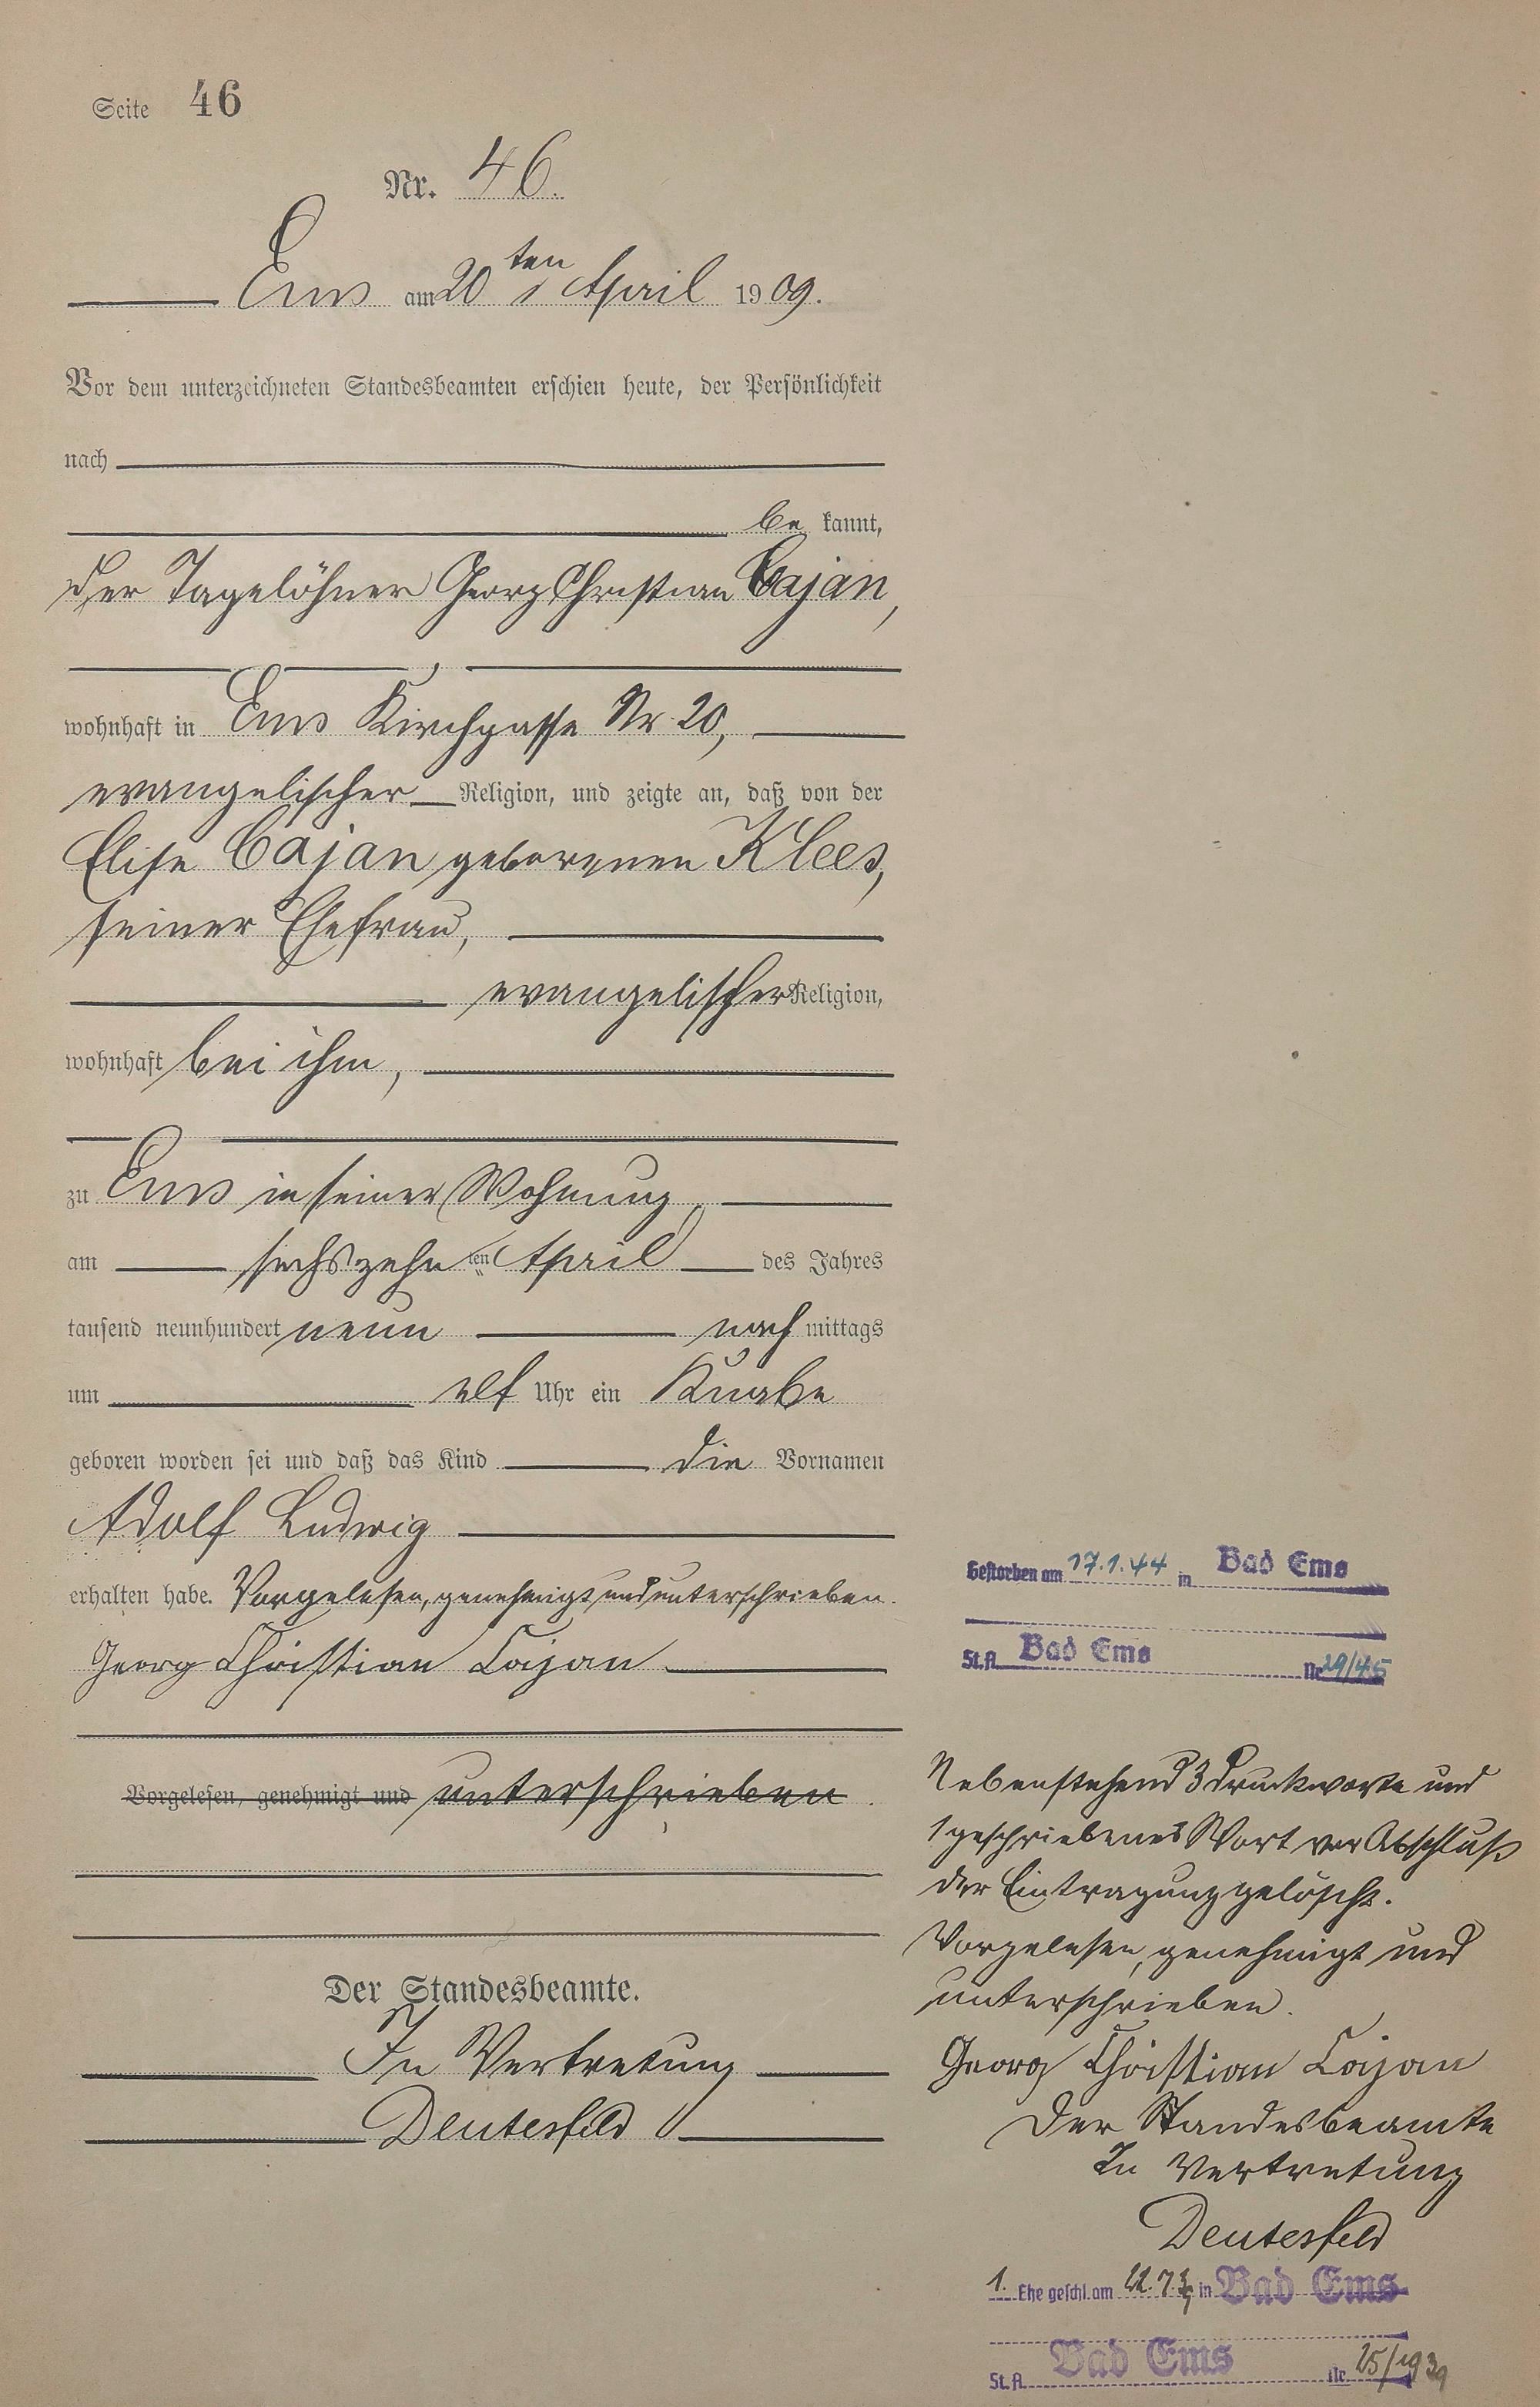 Seite 46
Nr. 46.
Ems am 20ten April 1909.
Vor dem unterzeichneten Standesbeamten erschien heute, der Persönlichkeit
nach
be kannt,
der Tagelöhner Georg Christian Cajan,
wohnhaft in Ems Kirchgasse Nr. 20,
evangelischer Religion, und zeigte an, daß von der
Elise Cajan geborenen Klees,
seiner Ehefrau,
evangelischer Religion,
wohnhaft bei ihm,
zu Ems in seiner Wohnung,
am sechszehnten April des Jahres
tausend neunhundert neun nach mittags
um elf Uhr ein Knabe
geboren worden sei und daß das Kind die Vornamen
Adolf Ludwig
erhalten habe. Vorgelesen, genehmigt und unterschrieben.
Georg Christian Cajan
Vorgelesen, genehmigt und unterschrieben.
Der Standesbeamte.
In Vertretung
Deutesfeld
Gestorben am 17.1.44 in Bad Ems
St.A. Bad Ems Nr. 29/45
Nebenstehend 3 Druckworte und
1 geschriebenes Wort vor Abschluß
der Eintragung gelöscht.
Vorgelesen, genehmigt und
unterschrieben.
Georg Christian Cajan
Der Standesbeamte
In Vertretung
Deutesfeld
1. Ehe geschl. am in Bad Ems
St.A. Bad Ems Nr. 25/1939